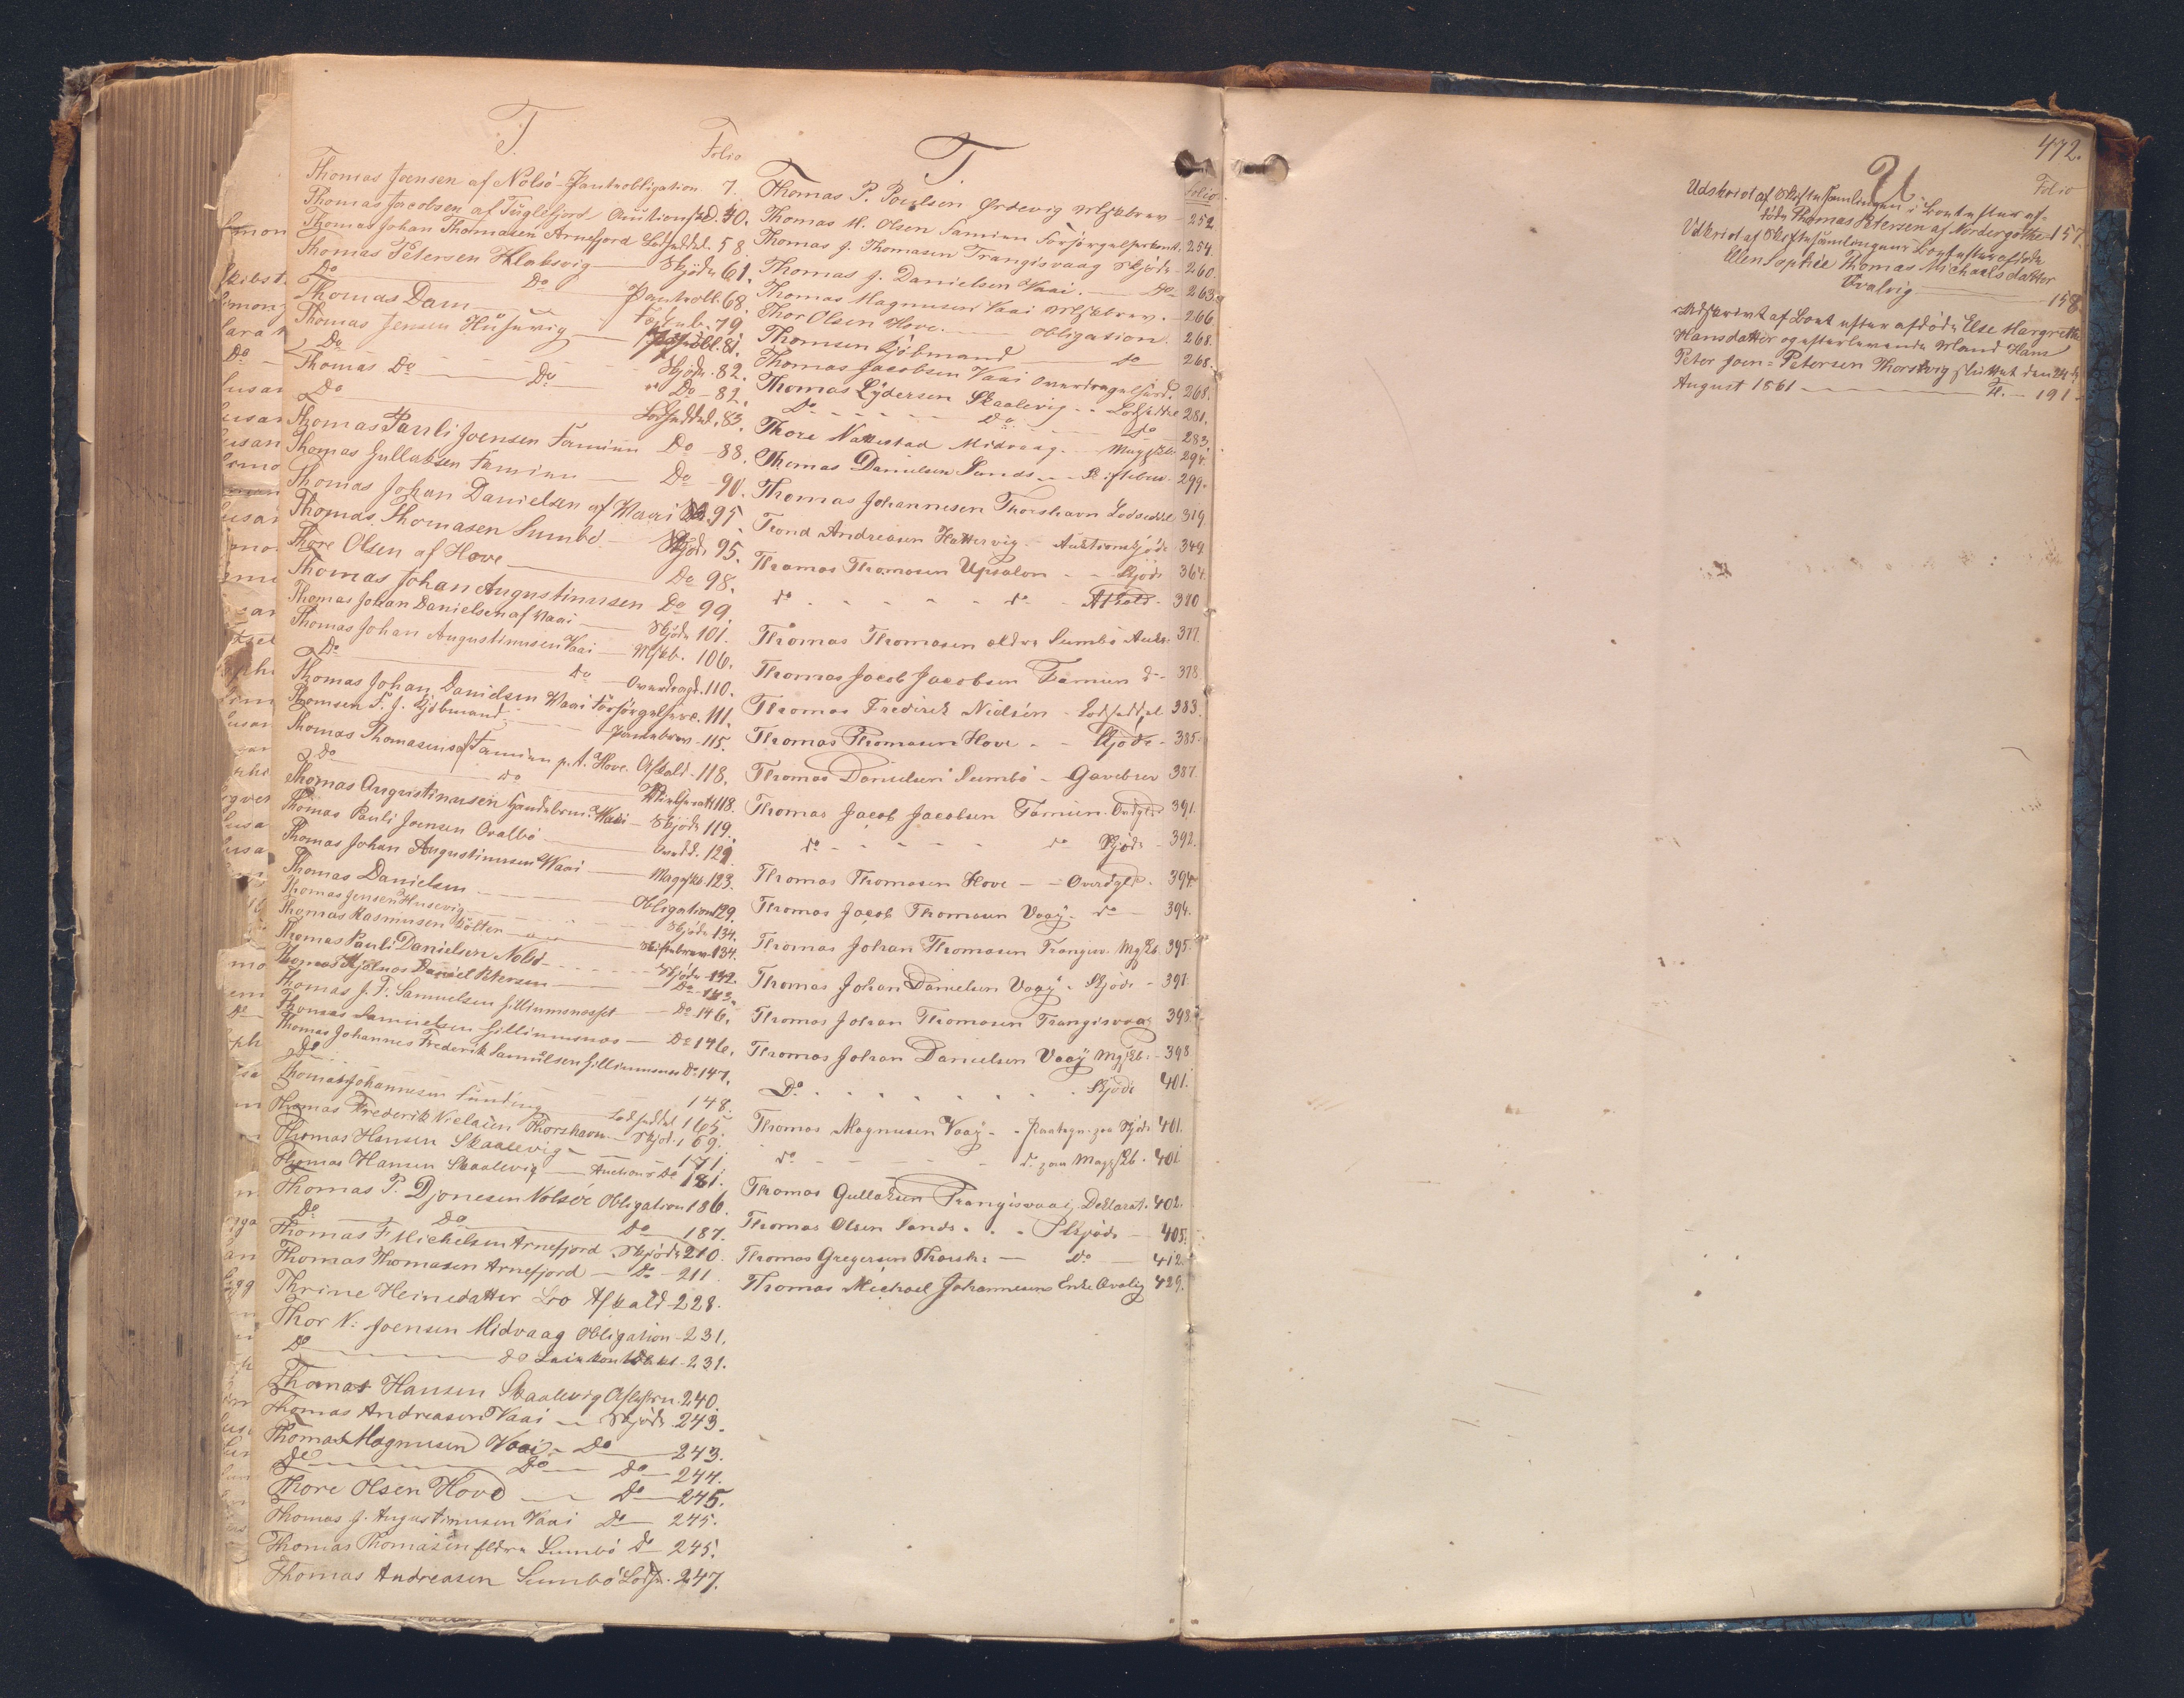 T.
Folio
Thomas Joensen af Nolsö Pantobligation 7.
Thomas Jacobsen af Fuglefjord Auitionskd. 30.
Thomas Johan Thomasen Arnefjord Lodseddel. 58.
Thomas Petersen Klaksvig Skjöde 61.
Do Do Pantobl. 68.
Thomas Dam 79.
Thomas Jensen Husevig 81.
Do Skjöde 82.
Thomas Do Do Do 82.
Do Lodseddel. 83.
Thomas Pauli Joensen Famien Do 88.
Thomas Gullaksen Famien Do 90.
Thomas Johan Danielsen af Waai Do 95
Thomas Thomasen Sumbö Skjöde 95.
Thore Olsen af Hove Do 98.
Thomas Johan Augustinusen Do 99.
Thomas Johan Danielsen af Vaai Skjöde 101.
Thomas Johan Augustinusen Vaai Mskb. 106.
Do do Overdragd. 110.
Thomas Johan Danielsen Waai Forsörgelsesc. 111.
Thomsen F. J. Kjöbmand 115.
Thomas Thomasen af Famien p.t. Hove. Afkald 118.
Do do 118.
Thomas Augustinusen Waai Skjöde 119.
Thomas Pauli Joensen Qvalbö 121.
Thomas Johan Augustinusen Waai Mageskb. 123.
Thomas Danielsen Obligation 129.
Thomas Jensen Husevig Skjöde 134.
Thomas Rasmusen Gölten Skiftebrev 134.
Thomas Pauli Danielsen Nolsö Skjöde 142.
Thomas Kjölnæs Daniel Petersen Do 143.
Thomas J. F. Samuelsen Gilliumsnæsset Do 146.
Thomas Samuelsen Gilliumsnæs Do 146.
Thomas Johannes Frederik Samuelsen Gilliumsnæs Do 147.
Do 148.
Thomas Johannesen Funding Lodseddel 165.
Thomas Frederik Nielsen Thorshavn Skjöd. 169.
Thomas Hansen Skaalevig 171.
Thomas Hansen Skaalevig Auctions Do 181.
Thomas P. Djonesen Nolsöe Obligation 186.
Do Do Do 187.
Thomas F. Michelsen Arnefjord Skjöde 210.
Thomas Thomasen Arnefjord Do 211.
Thrine Heinedatter Lro Afkald 228.
Thor N: Joensen Midvaag Obligation 231.
Do do 231.
Thomas Hansen Skaalevig 240.
Thomas Andreasen Vaai Skjöde 243.
Thomas Magnusen Vaai Do 243.
Do Do Do 244.
Thore Olsen Hove Do 245.
Thomas J. Augustinusen Vaai Do 245.
Thomas Thomasen ældre Sumbö Do 245.
Thomas Andreasen Sumbö Lods. 247.
T.
Folio
Thomas P. Poulsen Ördevig Mskbrev 252
Thomas M. Olsen Famien Forsörgelseskont. 254.
Thomas J. Thomasen Trangisvaag Skjöde 260.
Thomas J. Danielsen Vaai. Do 263.
Thomas Magnusen Vaai Mskbrev. 266.
Thor Olsen Hove. Obligation. 268.
Thomsen Kjöbmand do 268.
Thomas Jacobsen Vaai Overdragelsesd. 268.
Thomas Lydersen Skaalevig Lodseddel 281.
Do Do do 283.
Thore Nattestad Midvaag Magskb. 294.
Thomas Danielsen Sands Skiftebrev. 299.
Thomas Johannesen Thorshavn Lodseddel 319.
Trond Andreasen Hattervig Auktionsskjöde 349
Thomas Thomasen Upsalon Skjöde 364.
do do Afkald 370
Thomas Thomasen ældre Sumbö Auks. 377.
Thomas Jacob Jacobsen Famien do 378
Thomas Frederik Nielsen Lodseddel 383.
Thomas Thomasen Hove Skjöde 385.
Thomas Danielsen Sumbö Gavebrev 387.
Thomas Jacob Jacobsen Famien. Ovdgls. 391.
do do Skjöde 392.
Thomas Thomasen Hove Overdgls. 394.
Thomas Jacob Thomasen Vaag do 394.
Thomas Johan Thomasen Trangisv. Mgskb. 395.
Thomas Johan Danielsen Vaag Skjöde 397.
Thomas Johan Thomasen Trangisvaag 398.
Thomas Johan Danielsen Vaag Mgskb: 398
Do. Skjöde 401.
Thomas Magnusen Vaag Paategn. paa Skjöde 401.
do do paa Magskb. 401
Thomas Gullaksen Trangisvaag. Deklarat. 402.
Thomas Olsen Sands Skjöde 405.
Thomas Gregersen Thorsh: Do 412.
Thomas Michael Johannesens Enke Qvalvig 429.
472.
U.
Folio
Udskrivt af Skiftesamlingen i Boet efter af-
döde Thomas Petersen af Nordregöthe 157.
Udskrivt af Skiftesamlingen i Boet efter afdöde
Elen Sophie Thomas Michaelsdatter
Qvalvig 158.
Udskrivt af Boet efter afdöde Else Margrethe
Hansdatter og efterlevende Mand Hans
Peter Joen-Petersen Thorsvig sluttet den 24de
August 1861 191.